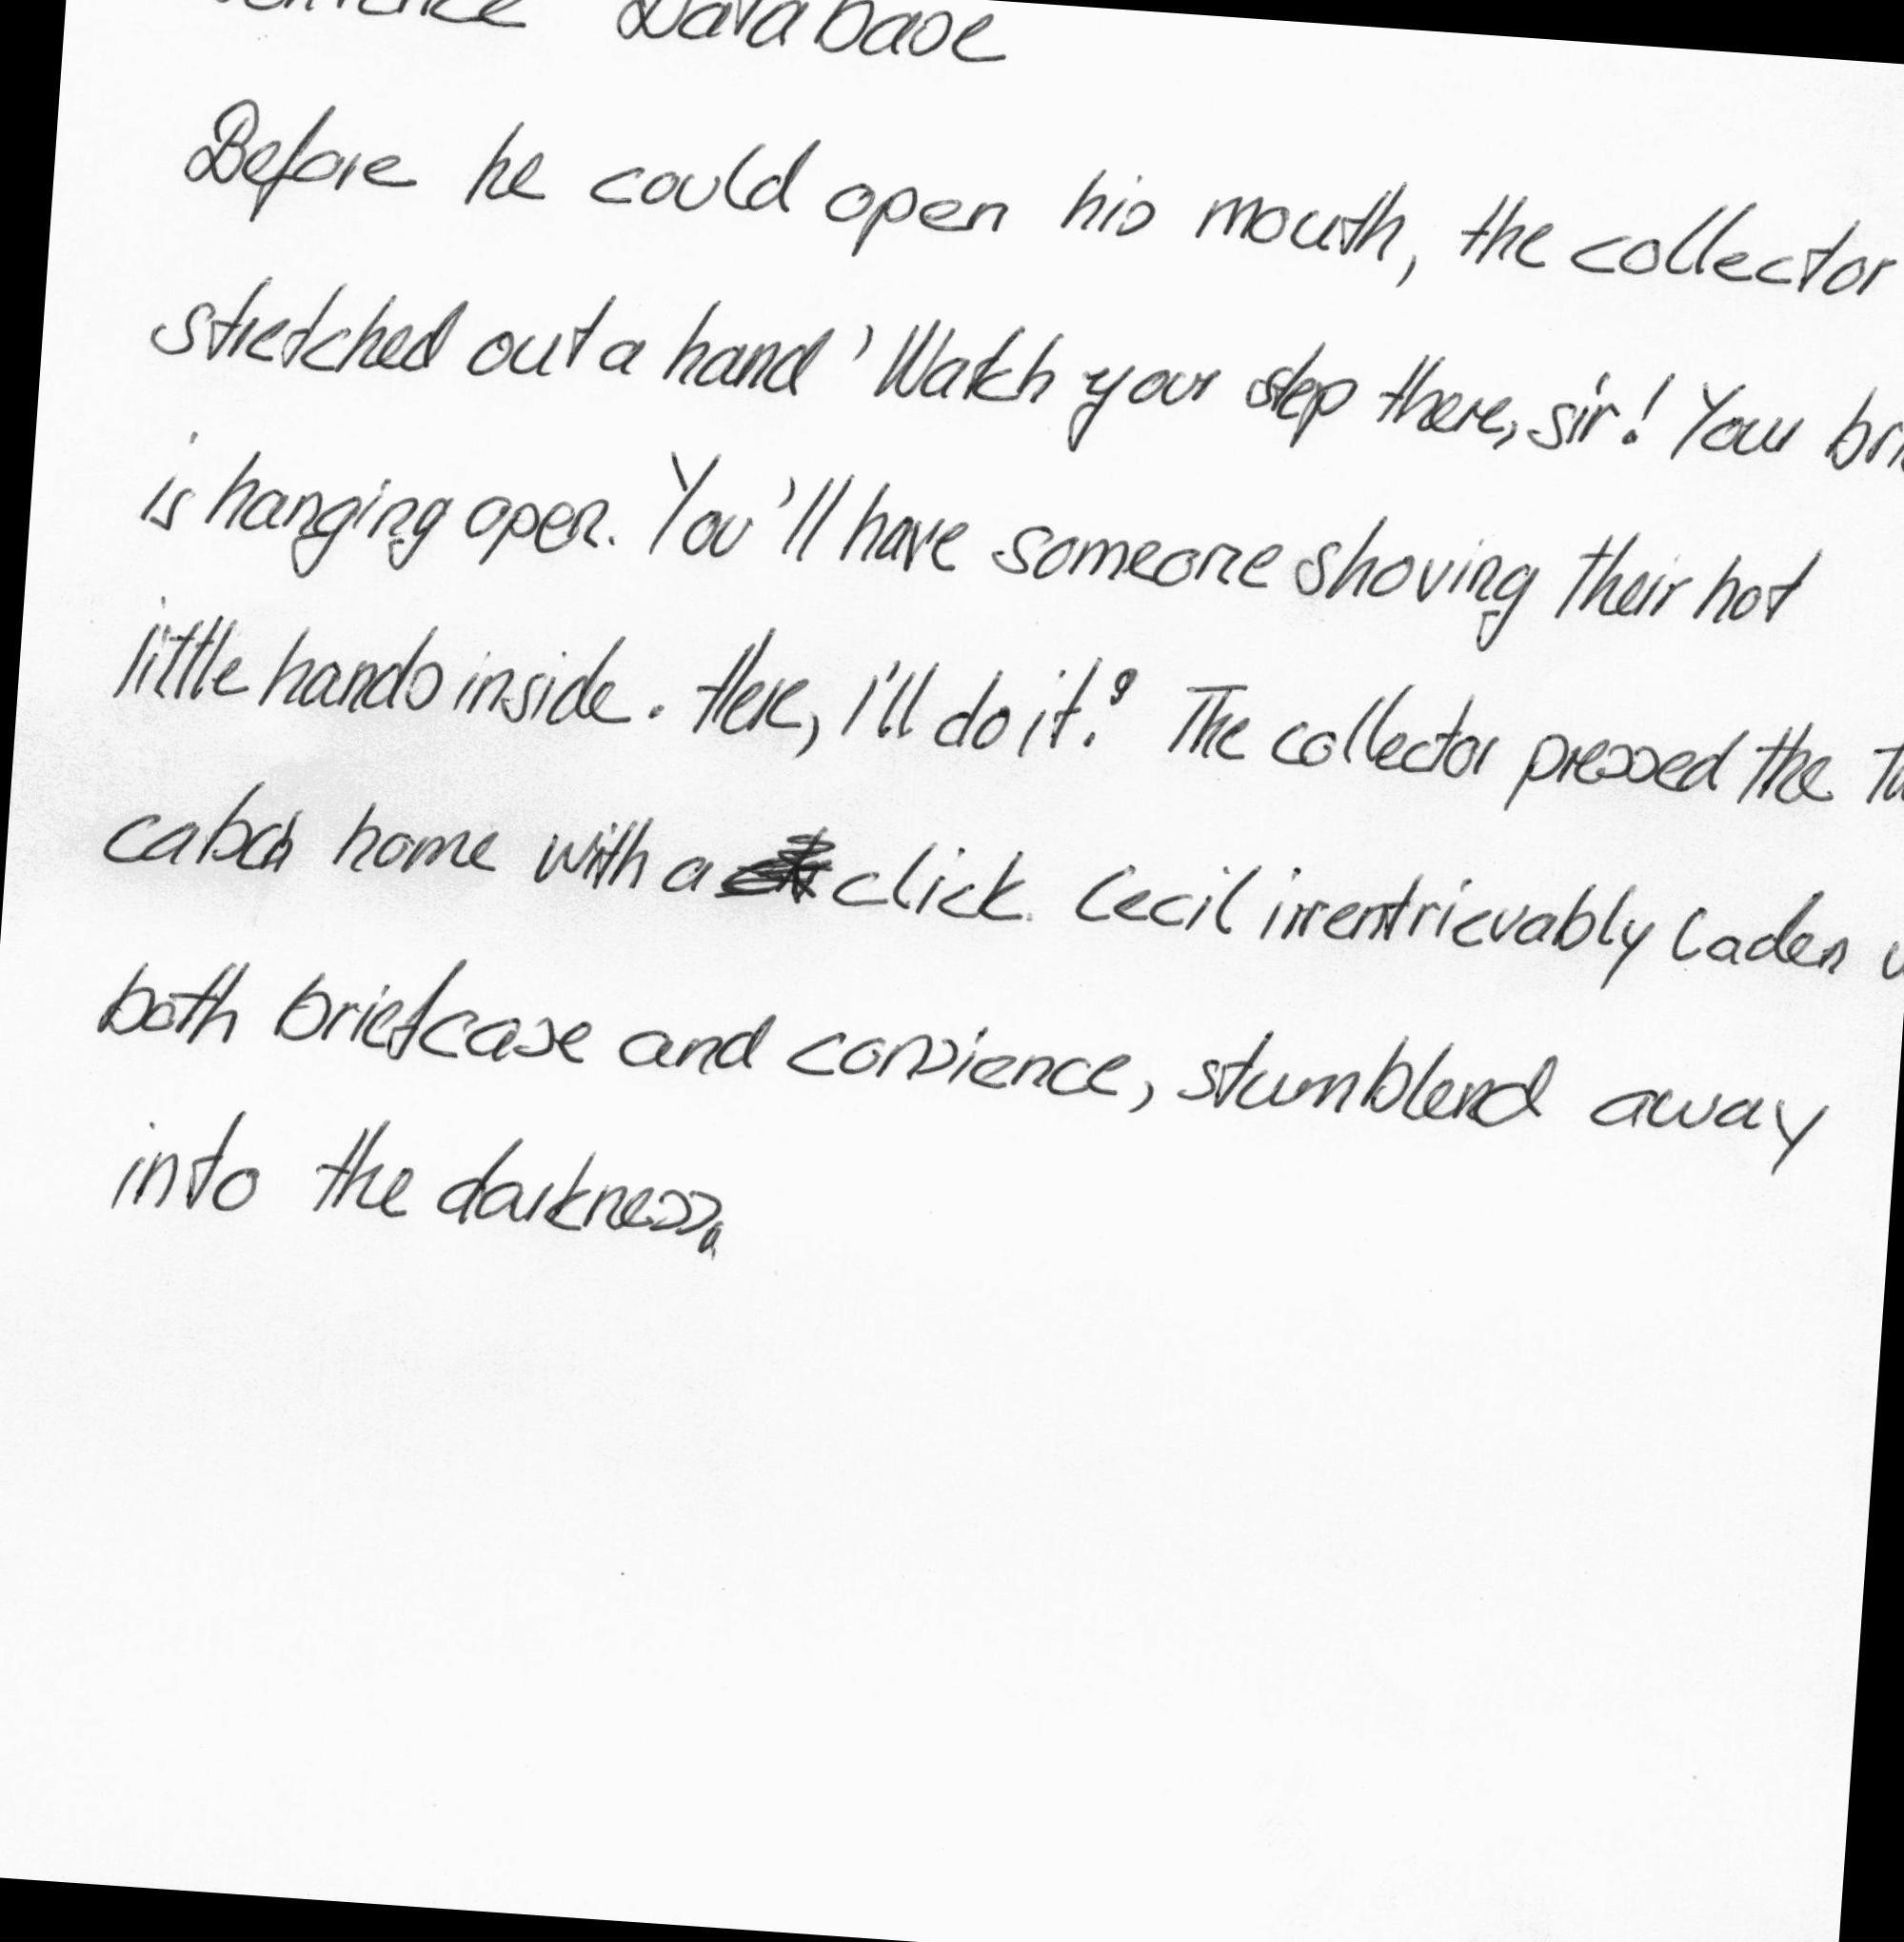 Database
Before he could open his mouth, the collector
stretched out a hand 'Watch your step there, sir! Your
is hanging open. You'll have someone shoving their hot
little hands inside. Here, I'll do it.' The collector pressed the
home with a click. Cecil irrentrievably laden
both briefcase and consience, stumblend away
into the darkness.